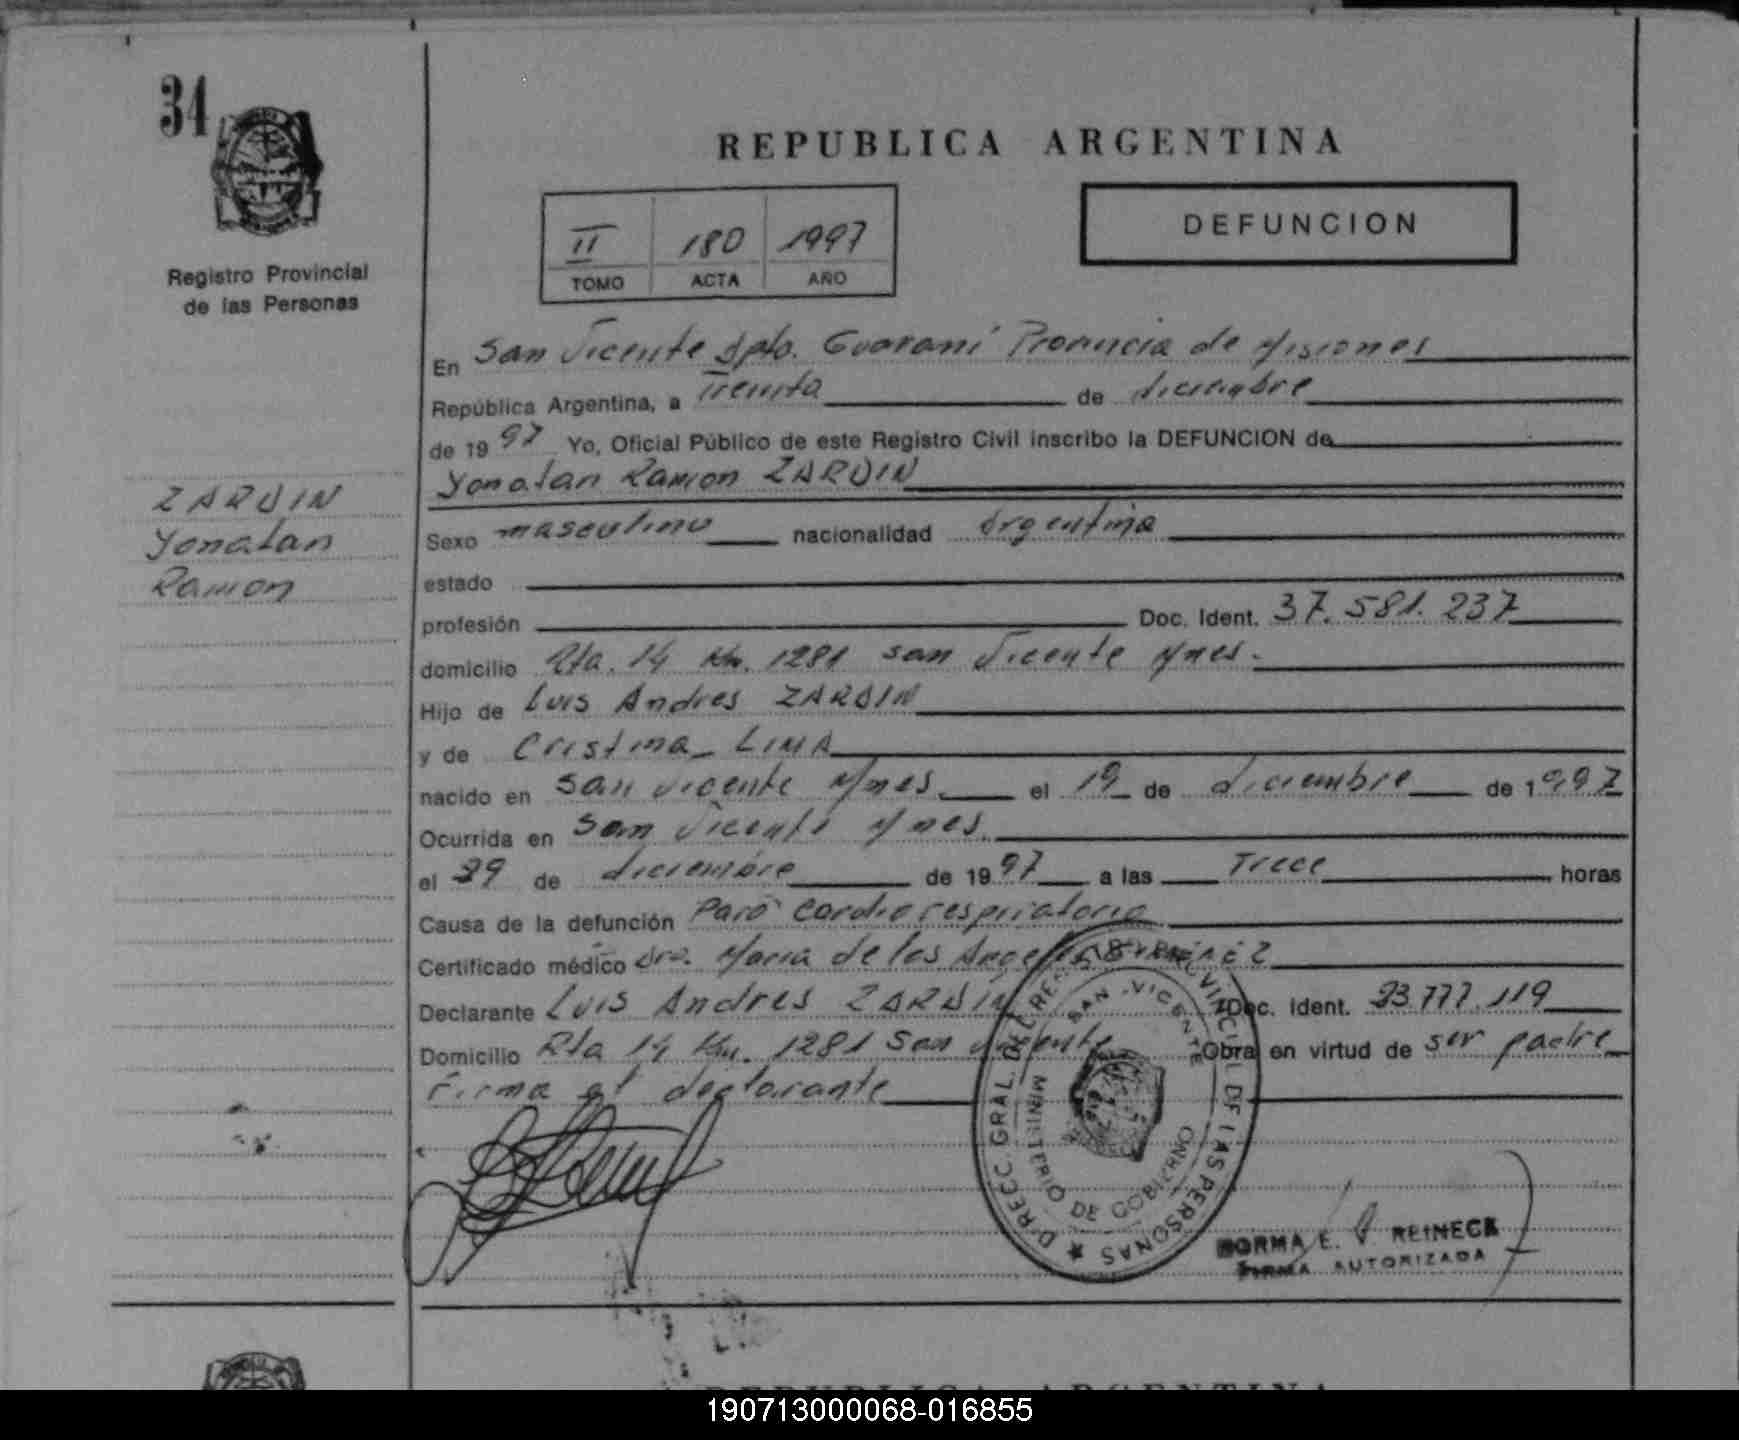 34
REPUBLICA ARGENTINA
DEFUNCION
II 180 1997
TOMO ACTA AÑO
Registro Provincial
de las Personas
En San Vicente Dpto. Guaraní Provincia de Misiones
República Argentina, a Treinta de diciembre
de 1997 Yo, Oficial Público de este Registro Civil inscribo la DEFUNCION de
Yonatan Ramon ZARDIN
ZARDIN
Yonatan
Ramon
Sexo masculino nacionalidad Argentina
estado
profesión Doc. Ident. 37.581.237
domicilio Rta. 14 Km. 1281 San Vicente Mnes.
Hijo de Luis Andres ZARDIN
y de Cristina LIMA
nacido en San Vicente Mnes. el 19 de diciembre de 1997
Ocurrida en San Vicente Mnes.
el 29 de diciembre de 1997 a las Trece horas
Causa de la defunción Paro Cardio respiratorio
Certificado médico Dra. Maria de los Angeles
Declarante Luis Andres ZARDIN Doc. Ident. 23.777.119
Domicilio Rta 14 Km. 1281 San Vicente Obra en virtud de ser padre
Firma el declarante
DIRECC. GRAL. DEL REG. PROVINCIAL DE LAS PERSONAS
SAN VICENTE
MINISTERIO DE GOBIERNO
NORMA E. REINECK
FIRMA AUTORIZADA
REPUBLICA ARGENTINA
190713000068-016855